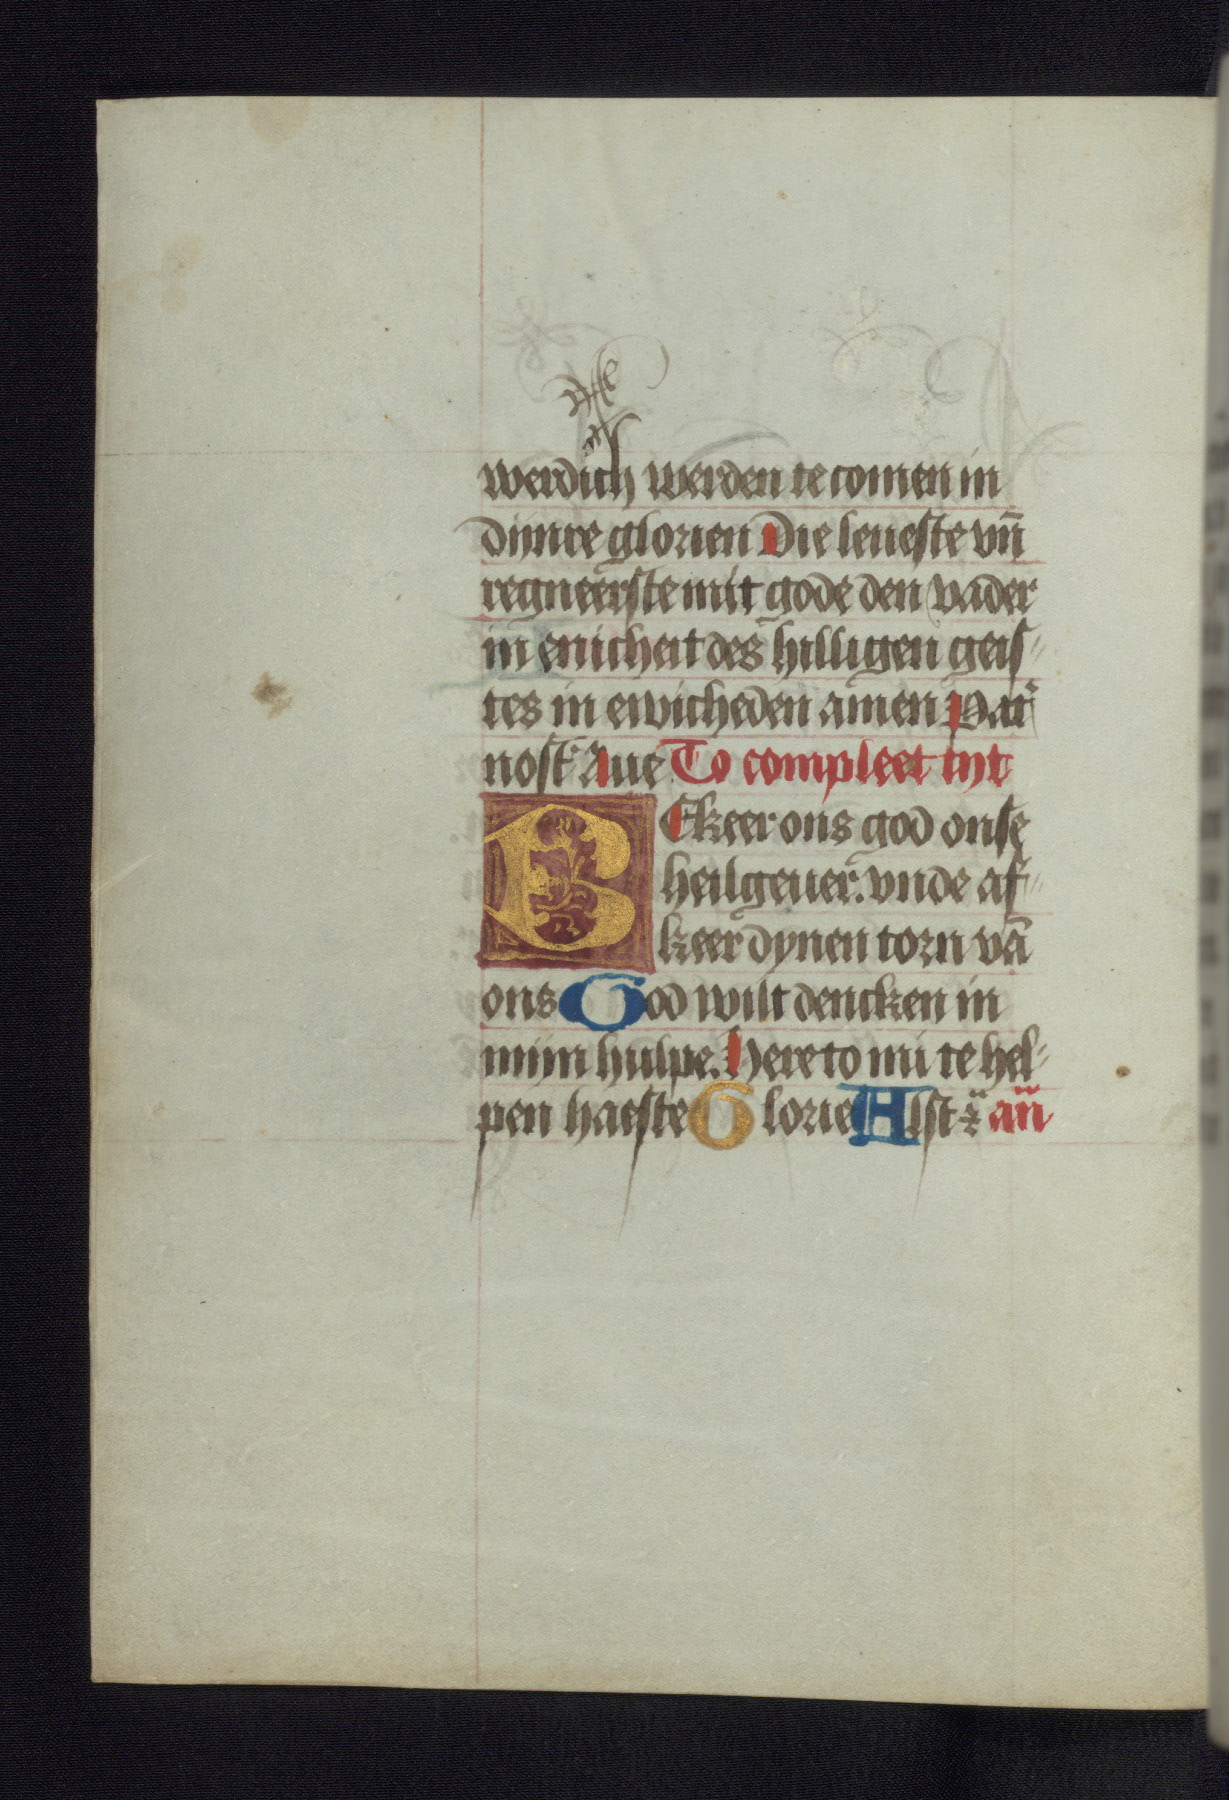 werdich werden te comen in
dijnre glorien Die leueste vn̄
regneerste mit gode den vader
in enicheit des hilligen geis⸗
tes in ewicheden amen Pat̄
nost̄ Aue To compleet tyt
BEkeer ons god onse
heilgeuer. vnde af⸗
keer dynen torn vā
ons God wilt dencken in
mijn hulpe. Here to mi te hel⸗
pen haeste Glorie Alst ⁊̄ an̄